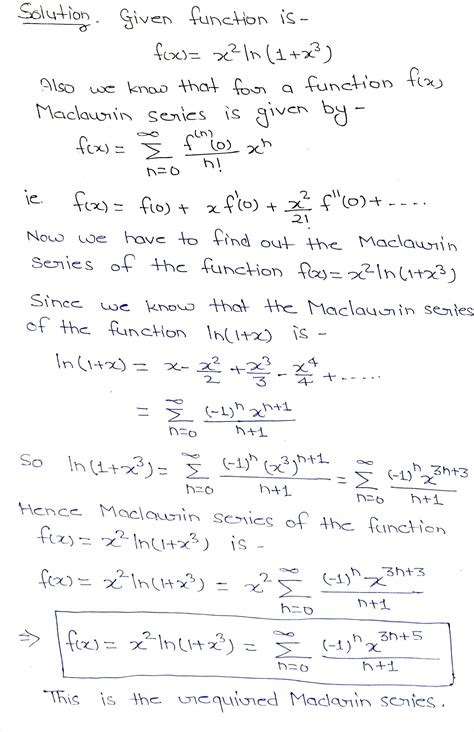 Solution. Given function is -
f(x) = x² ln(1+x³)
Also we know that for a function f(x)
Maclaurin series is given by -
f(x) = ∑_{n=0}^{∞} f^{(n)}(0)/n! xⁿ
ie. f(x) = f(0) + x f'(0) + x²/2! f''(0) + - - - -
Now we have to find out the Maclaurin
series of the function f(x) = x² ln(1+x³)
Since we know that the Maclaurin series
of the function ln(1+x) is -
ln(1+x) = x - x²/2 + x³/3 - x⁴/4 + - - - - .
= ∑_{n=0}^{∞} (-1)ⁿ x^{n+1}/n+1
So ln(1+x³) = ∑_{n=0}^{∞} (-1)ⁿ (x³)^{n+1}/n+1 = ∑_{n=0}^{∞} (-1)ⁿ x^{3n+3}/n+1
Hence Maclaurin series of the function
f(x) = x² ln(1+x³) is -
f(x) = x² ln(1+x³) = x² ∑_{n=0}^{∞} (-1)ⁿ x^{3n+3}/n+1
⇒ f(x) = x² ln(1+x³) = ∑_{n=0}^{∞} (-1)ⁿ x^{3n+5}/n+1
This is the required Maclarin series.